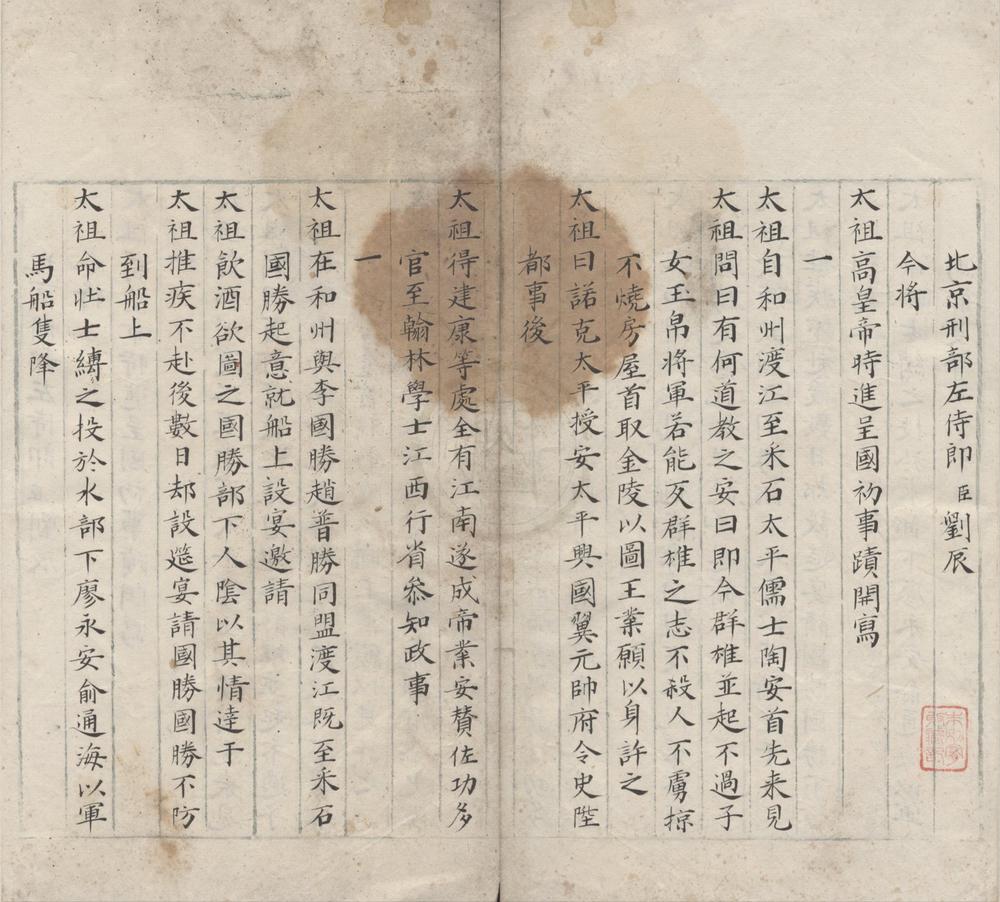 北京刑部左侍郎臣劉辰
今將
太祖高皇帝時進呈國初事蹟開寫
一
太祖自和州渡江至采石太平儒士陶安首先来見
太祖問曰有何道教之安曰即今群雄並起不過子
女玉帛将軍若能反群雄之志不殺人不虜掠
不燒房屋首取金陵以圖王業願以身許之
太祖曰諾克太平授安太平興國翼元帥府令史陞
都事後
太祖得建康等處全有江南遂成帝業安贊佐功多
官至翰林學士江西行省叅知政事
一
太祖在和州與李國勝趙普勝同盟渡江既至采石
國勝起意就船上設宴邀請
太祖飲酒欲圖之國勝部下人陰以其情達于
太祖推疾不赴後數日却設筵宴請國勝國勝不防
到船上
太祖命壮士縛之投於水部下廖永安俞通海以軍
馬船隻降